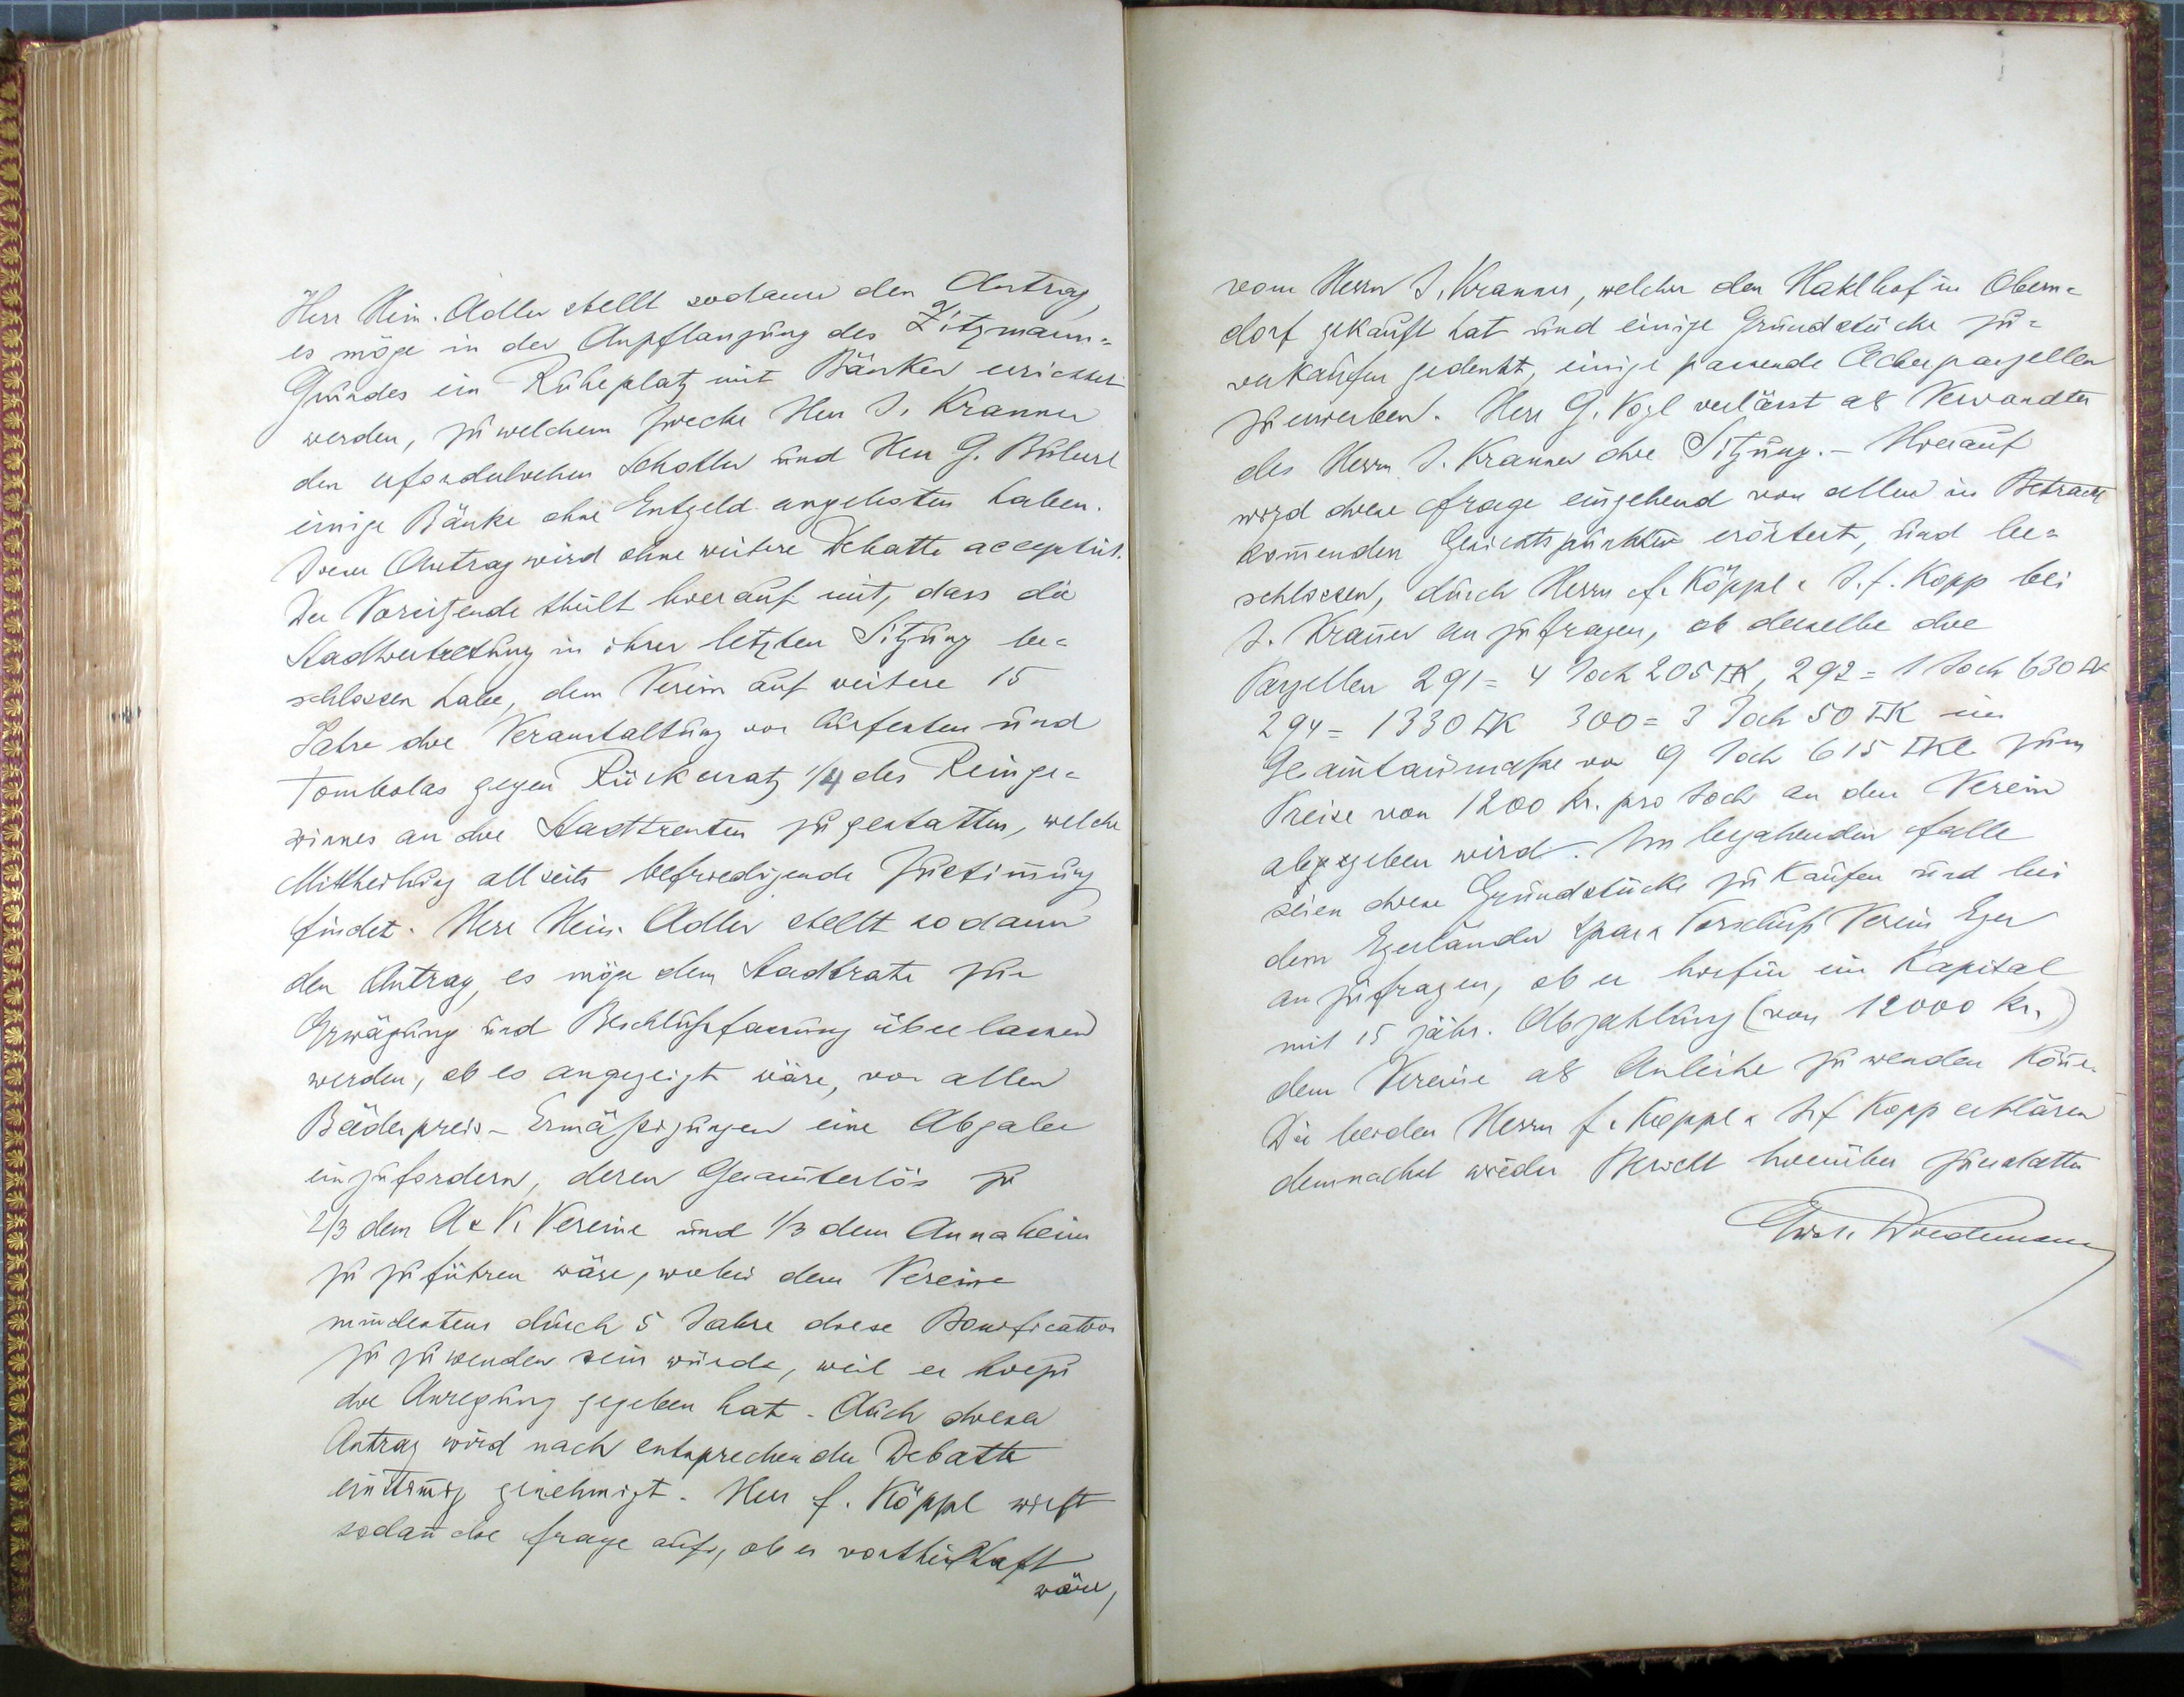 Herr Hein. Adler stellt sodann den Antrag,
es möge in der Anpflanzung des Zitzmann=
Grundes ein Ruheplatz mit Bänken errichtet
werden, zu welchem Zwecke Herr J. Kranner
den erforderlichen Schotter und Herr G.
einige Bänke ohne Entgeld angeboten haben.
Dieser Antrag wird ohne weitere Debatte acceptirt.
Der Vorsitzende theilt hierauf mit, dass die
Stadtvertretung in ihrer letzten Sitzung be=
schlossen habe, dem Verein auf weitere 15
Jahre die Veranstaltung von Kurfesten und
Tombolas gegen Rückersatz 1/4 des Reinge=
winnes an die Stadtrenten zu gestatten, welche
Mittheilung allseits befriedigende Zustim̄ung
findet. Herr Hein. Adler stellt sodann
den Antrag, es möge dem Stadtrate zur
Erwägung und Beschlußfassung überlassen
werden, ob es angezeigt wäre, von allen
Bäderpreis-Ermäßigungen eine Abgabe
einzufordern, deren Gesam̄terlös zu
2/3 dem A & V. Vereine und 1/3 dem Annaheim
zu zuführen wäre, wobei dem Vereine
mindestens durch 5 Jahre diese Bonification
zu zuwenden sein würde, weil er hiezu
die Anregung gegeben hat. Auch dieser
Antrag wird nach entsprechender Debatte
einstim̄ig genehmigt. Herr F. Köppl wirft
sodan̄ die Frage auf, ob es vortheilhaft
wäre,
vom Herrn J. Kranner, welcher den Haklhof in Obern=
dorf gekauft hat und einige Grundstücke zu=
verkaufen gedenkt, einige passende Ackerparzellen
zu erwerben. Herr G. Vogl verlässt als Verwandter
des Herrn J. Kranner die Sitzung. - Hierauf
wird diese Frage eingehend von allen in Betracht
kom̄enden Gesichtspunkten erörtert, und be=
schlossen, durch Herrn F. Köppl & J. F. Kopp bei
J. Kran̄er an zufragen, ob derselbe die
Parzellen 291 = 4 Joch 205 □K, 292 = 1 Joch 630 □K
294 = 1330 □K 300 = 3 Joch 50 □K im
Gesam̄tausmaße von 9 Joch 615 □Kl. zum
Preise von 1200 Kr. pro Joch an den Verein
abgegeben wird. Im bejahenden Falle
seien diese Grundstücke zu kaufen und bei
dem Egerländer Spar & Vorschuß Verein Eger
an zufragen, ob er hiefür ein Kapital
mit 15 jähr. Abzahlung (von 12000 Kr.)
dem Vereine als Anleihe zu wenden kön̄e.
Die beiden Herrn F. Köppl & J. F. Kopp erklären
demnächst wieder Bericht hierüber zuerstatten
Wiedemann